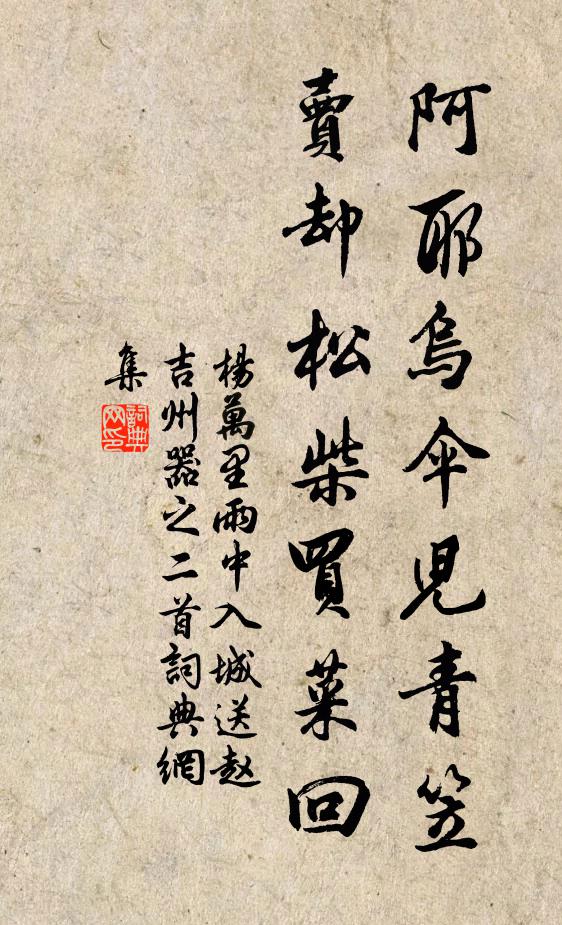 阿耶烏伞兒青笠
賣却松柴買菜回
楊萬里雨中入城送赵
吉州器之二首詞典網
集
詞典
网印